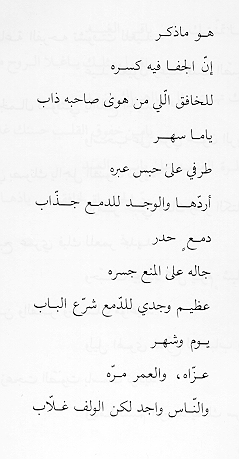 هـو ماذكـر
إنّ الجفـا فيه كسـره
للخافق الّلي من هوىٰ صاحبه ذاب
ياما سهـر
طرفي علىٰ حبس عبره
أردّهـا والوجـد للدمـع جـذّاب
دمـعٍ حدر
جاله علىٰ المنع جسره
عظيـم وجدي للدّمع شرّع البـاب
يـوم وشهـر
عـزّاه، والعمر مـرّه
والنّـاس واجد لكن الولف غـلّاب